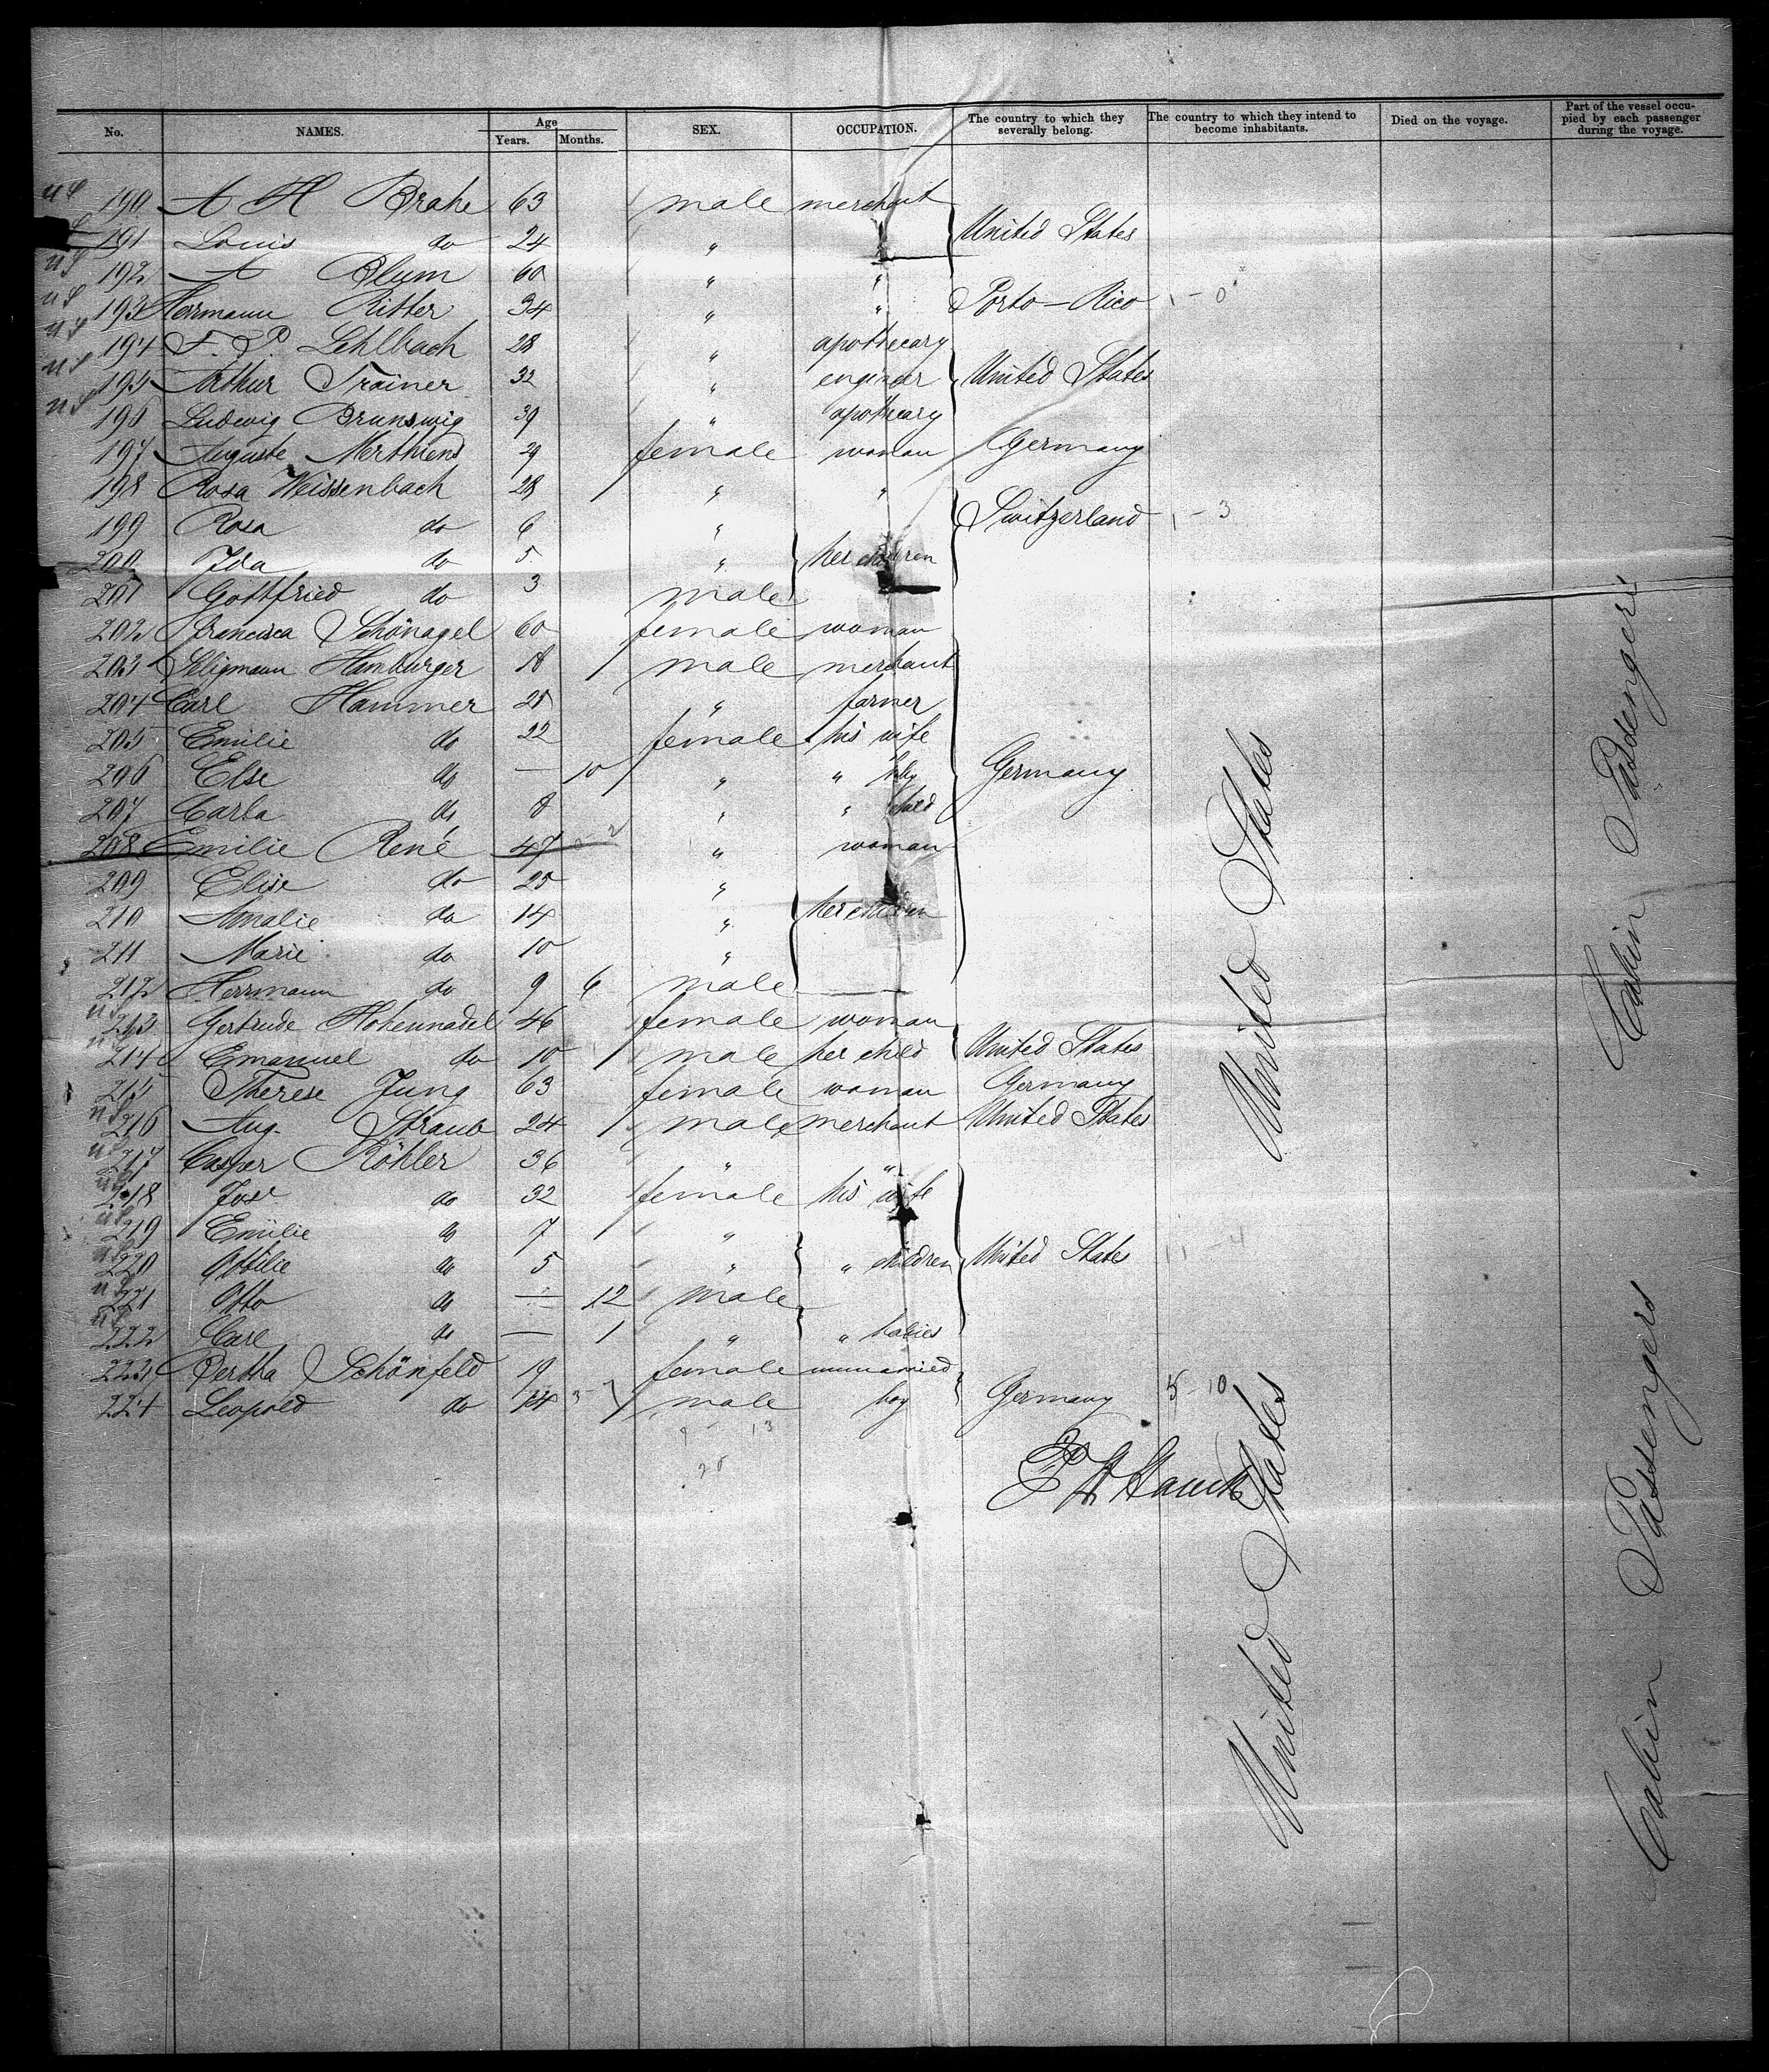 No. NAMES. Age Years. Months. SEX. OCCUPATION. The country to which they severally belong. The country to which they intend to become inhabitants. Died on the voyage. Part of the vessel occupied by each passenger during the voyage.
190 A H Brahe 63 male merchant
191 Louis do 24 " " United States
192 A Blum 60 " "
193 Herrmann Ritter 34 " " Porto-Rico 1 - 0
194 F. P. Lehlbach 28 " apothecary
195 Arthur Trainer 32 " engineer United States
196 Ludwig Brunswig 39 " apothecary
197 Auguste Merthiens 29 female woman Germany
198 Rosa Weissenbach 28 " "
199 Rosa do 6 " Switzerland 1 - 3
200 Ida do 5 " her children
201 Gottfried do 3 male
202 Francisca Schönagel 60 female woman
203 Seligmann Hamburger 18 male merchant
204 Carl Hammer 28 " farmer
205 Emilie do 22 female his wife
206 Else do — 10 " " baby Germany
207 Carla do 8 " " child
208 Emilie René 47 " woman
209 Elise do 20 "
210 Amalie do 14 " her children
211 Marie do 10 "
212 Herrmann do 9 6 male
213 Gertrude Hohennadel 46 female woman
214 Emanuel do 10 male her child United States
215 Therese Jung 63 female woman Germany
216 Aug. Straub 24 male merchant United States
217 Casper Köhler 36 " "
218 Jos. do 32 female his wife
219 Emilie do 7 "
220 Ottilie do 5 " " children United States 11 - 4
221 Otto do — 12 male
222 Carl do — 1 " " babies
223 Bertha Schönfeld 19 female unmarried
224 Leopold do 14 male boy Germany 5 - 10
United States
Cabin Passengers
United States
Cabin Passengers